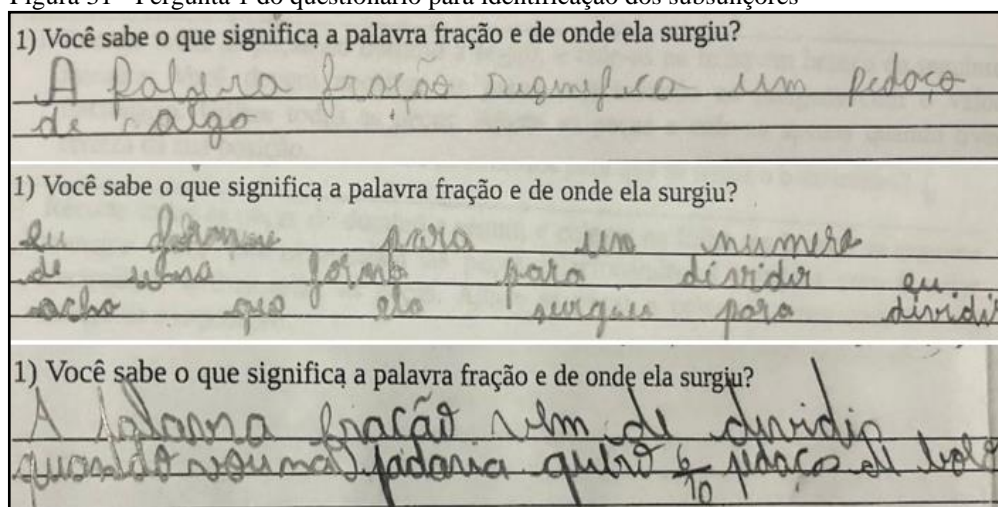 Figura 31 - Pergunta 1 do questionário para identificação dos subsunçores
1) Você sabe o que significa a palavra fração e de onde ela surgiu?
A palavra fração significa um pedaço
de algo
1) Você sabe o que significa a palavra fração e de onde ela surgiu?
eu para um numero
de forma para dividir eu
acho que ela surgiu para dividir
1) Você sabe o que significa a palavra fração e de onde ela surgiu?
A fração vem de dividir
quando padaria quero 6/10 pedaços de bolo